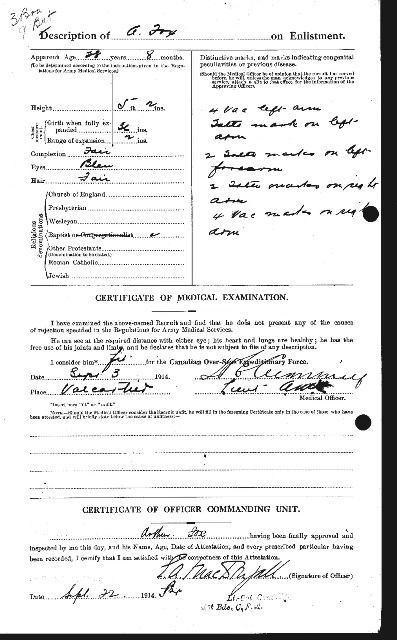 Description of A. Fox on Enlistment.
Apparent Age years 8 months.
(To be determined according to the instructions given in the Regulations for Army Medical Services)
Height 5 ft 2 ins.
Girth when fully expanded 36 ins.
Range of expansion 2 ins.
Complexion Fair
Eyes Blue
Hair Fair
Religious denominations
Church of England
Presbyterian
Wesleyan
Baptist or Congregationalist
Other Protestants
(Denomination to be stated)
Roman Catholic
Jewish
Distinctive marks, and marks indicating congenital
peculiarities or previous disease.
(Should the Medical Officer be of opinion that the recruit has served
before, he will, unless the man acknowledges to any previous
service, attach a slip to that effect, for the information of the
Approving Officer).
4 Vac left arm
mark on left
arm
2 marks on left
forearm
2 marks on right
arm
4 Vac marks on right
arm
CERTIFICATE OF MEDICAL EXAMINATION.
I have examined the above-named Recruit and find that he does not present any of the causes
of rejection specified in the Regulations for Army Medical Services.
He can see at the required distance with either eye; his heart and lungs are healthy; he has the
free use of his joints and limbs, and he declares that he is not subject to fits of any description.
I consider him* fit for the Canadian Over-Seas Expeditionary Force.
Date Sept 3 1914.
Place Valcartier
Medical Officer.
*Insert here "fit" or "unfit."
NOTE.—Should the Medical Officer consider the Recruit unfit, he will fill in the foregoing Certificate only in the case of those who have
been attested, and will briefly state below the cause of unfitness:—
CERTIFICATE OF OFFICER COMMANDING UNIT.
Arthur Fox having been finally approved and
inspected by me this day, and his Name, Age, Date of Attestation, and every prescribed particular having
been recorded, I certify that I am satisfied with the correctness of this Attestation.
(Signature of Officer)
Date Sept. 22 1914.